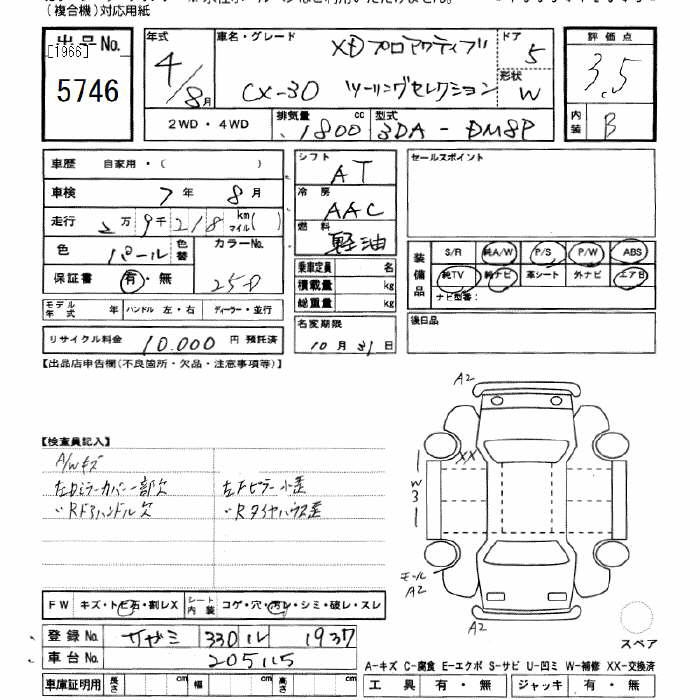 (複合機)対応用紙
出品No.
[1966]
5746
年式
4/8月
車名・グレード
XDプロアクティブ
CX-30 ツーリングセレクション
ドア
5
形状
W
評価点
3.5
内装
B
2WD・4WD
排気量
1800
cc
型式
3DA-DM8P
車歴 自家用・( )
車検 7年 8月
走行 2万9千218 km マイル( )
色 パール
色替
カラーNo.
保証書 有・無
シフト
AT
冷房
AAC
燃料
軽油
乗車定員 名
積載量 kg
総重量 kg
セールスポイント
装備品
S/R 純A/W P/S P/W ABS
純TV 純ナビ 革シート 外ナビ エアB
ナビ型番:
モデル年式 年 ハンドル 左・右 ディーラー・並行
リサイクル料金 10.000 円 預託済
名変期限
10月31日
後日品
【出品店申告欄(不良箇所・欠品・注意事項等)】
【検査員記入】
A/Wキズ
左Dミラーカバー一部欠
左Fピラー小歪
〃RFインハンドル欠
〃Rタイヤハウス歪
A2
XX
W3
モール A2
A2
スペア
FW キズ・トビ石・割レX
シート内装 コゲ・穴・汚レ・シミ・破レ・スレ
登録No. サガミ 330 ル 1937
車台No. 205115
車庫証明用 長さ 幅 高さ
A-キズ C-腐食 E-エクボ S-サビ U-凹ミ W-補修 XX-交換済
工具 有・無 ジャッキ 有・無